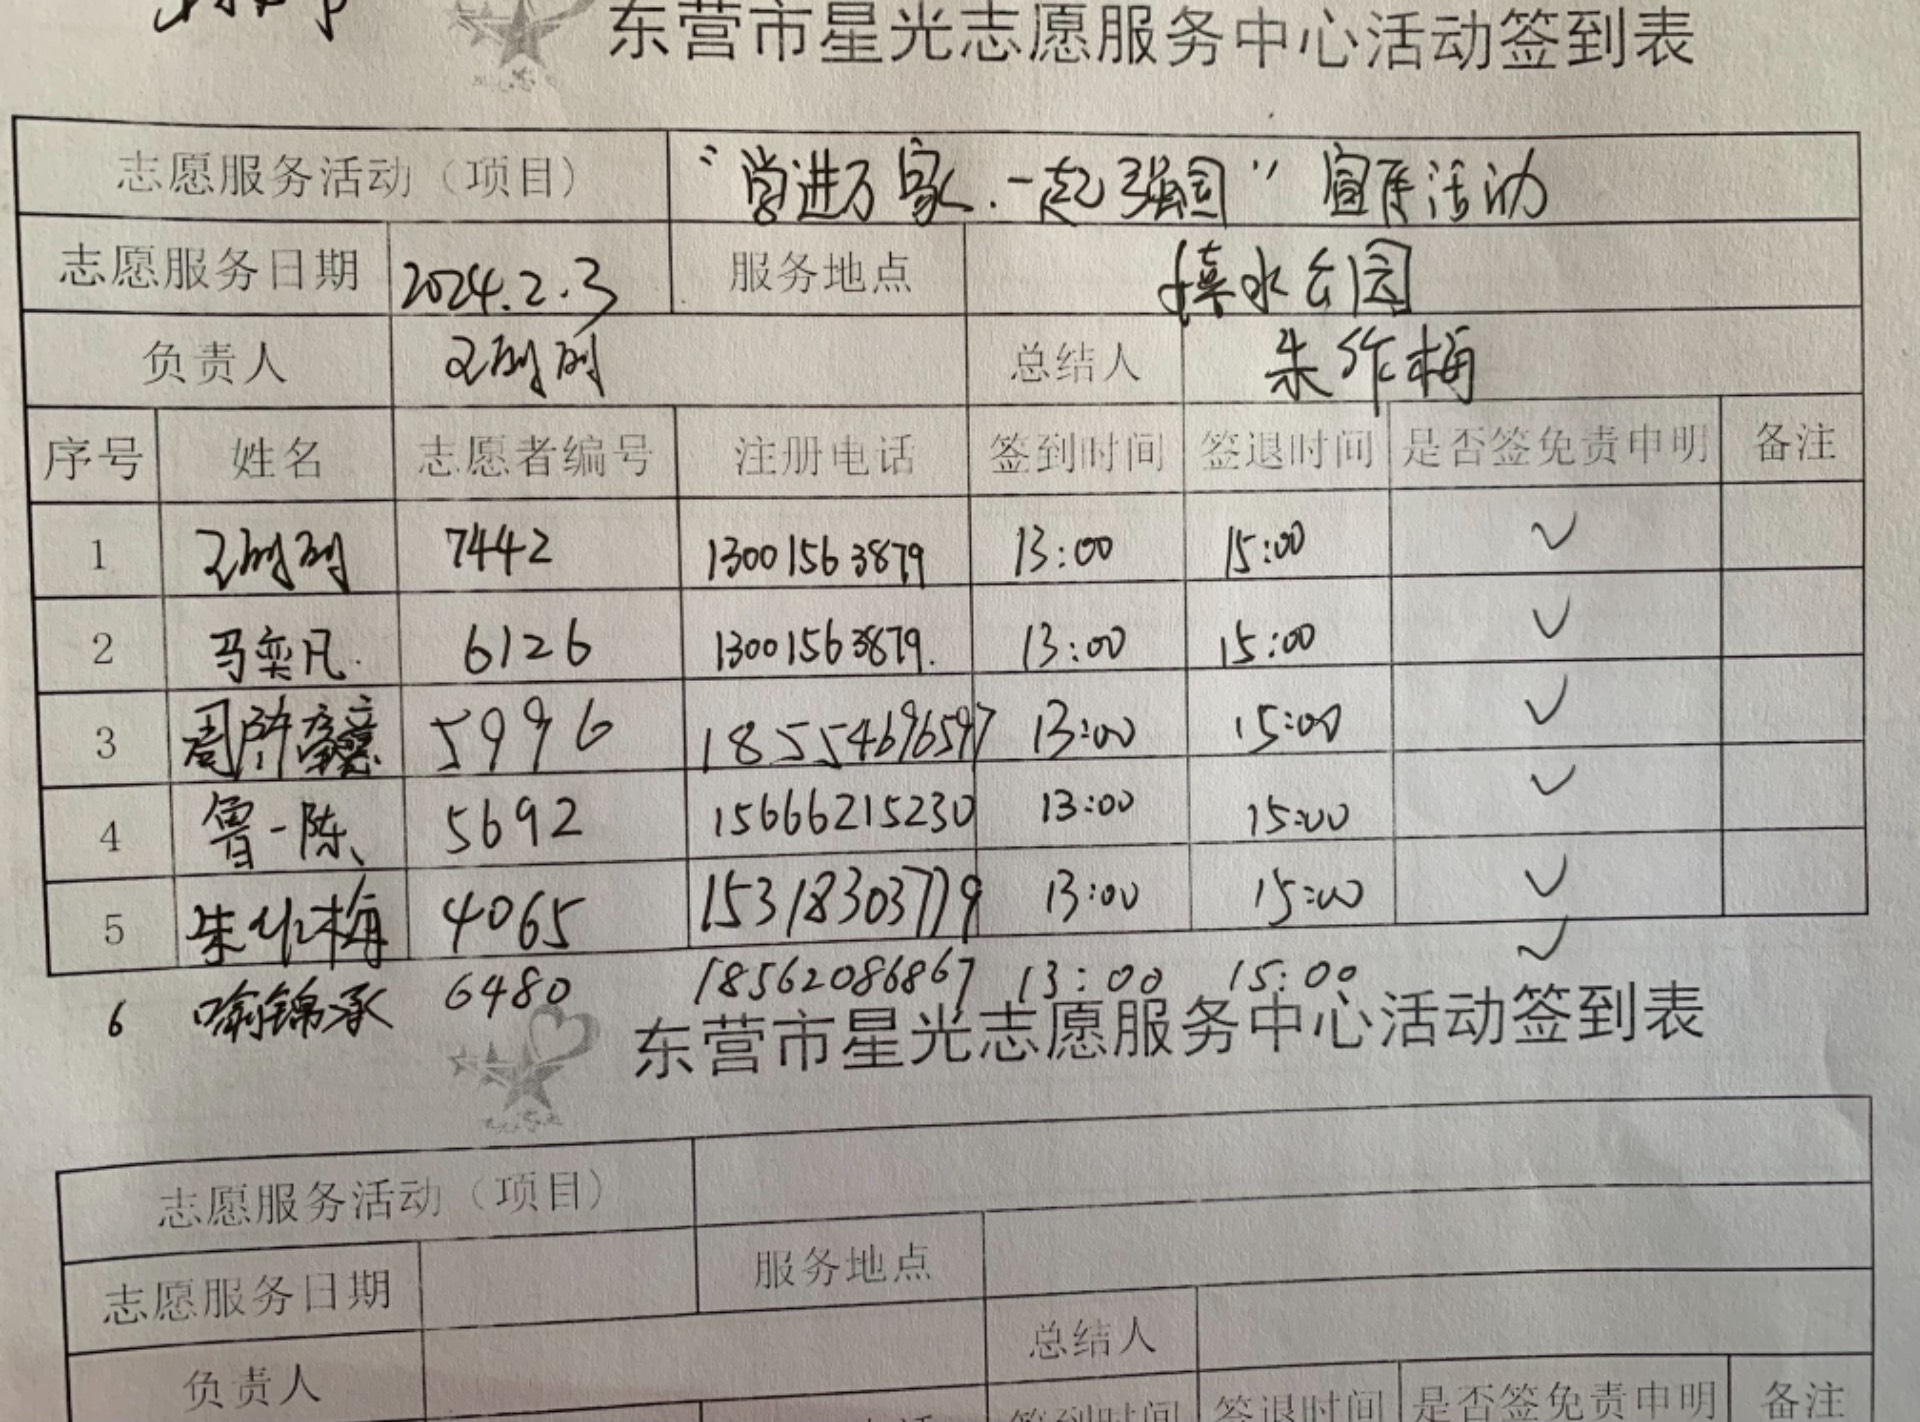 东营市星光志愿服务中心活动签到表
志愿服务活动（项目） “学进万家.一起强国”宣传活动
志愿服务日期 2024.2.3 服务地点 水公园
负责人 王 总结人 朱作梅
序号 姓名 志愿者编号 注册电话 签到时间 签退时间 是否签免责申明 备注
1 王 7442 13001563879 13:00 15:00 ✓
2 马奕凡. 6126 13001563879. 13:00 15:00 ✓
3 周 5996 18554696597 13:00 15:00 ✓
4 鲁一陈 5692 15666215230 13:00 15:00 ✓
5 朱作梅 4065 15318303779 13:00 15:00 ✓
6 喻锦承 6480 18562086867 13:00 15:00 ✓
东营市星光志愿服务中心活动签到表
志愿服务活动（项目）
志愿服务日期 服务地点
负责人 总结人
签到时间 签退时间 是否签免责申明 备注